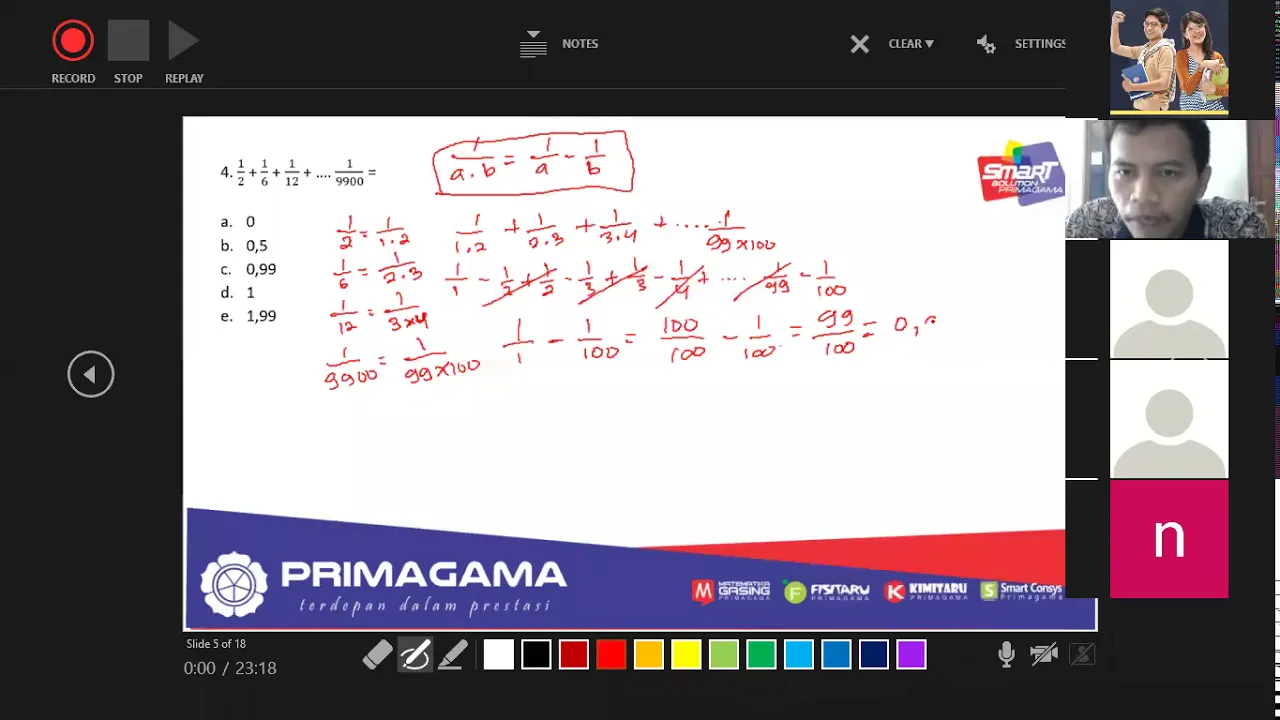 RECORD STOP REPLAY
NOTES
CLEAR ▼
SETTINGS
4. 1/2 + 1/6 + 1/12 + .... 1/9900 =
1/a.b = 1/a - 1/b
a. 0
b. 0,5
c. 0,99
d. 1
e. 1,99
1/2 = 1/1.2
1/6 = 1/2.3
1/12 = 1/3x4
1/9900 = 1/99x100
1/1.2 + 1/2.3 + 1/3.4 + .... 1/99x100
1/1 - 1/2 + 1/2 - 1/3 + 1/3 - 1/4 + .... 1/99 - 1/100
1/1 - 1/100 = 100/100 - 1/100 = 99/100 = 0,
SMART
SOLUTION
PRIMAGAMA
n
PRIMAGAMA
terdepan dalam prestasi
M MATEMATIKA GASING PRIMAGAMA
F FISITARU PRIMAGAMA
K KIMITARU PRIMAGAMA
S Smart Consys Primagama
Slide 5 of 18
0:00 / 23:18